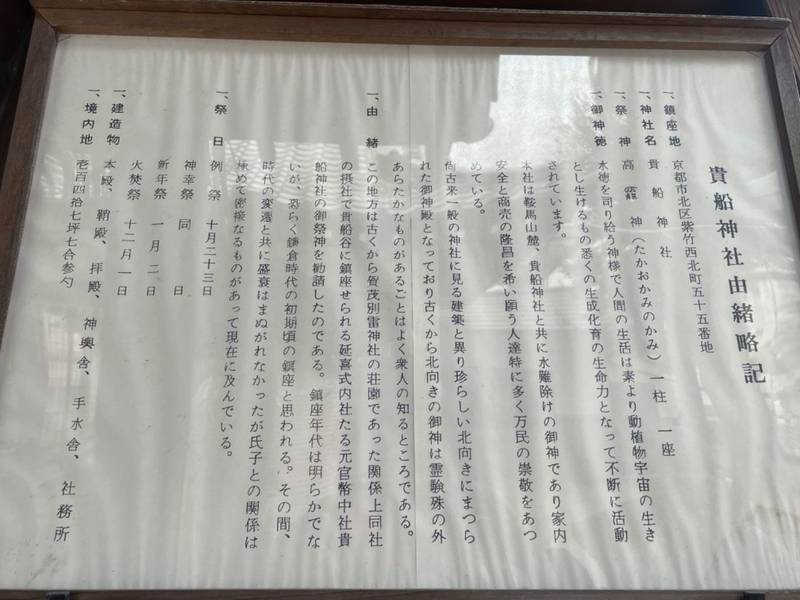 貴船神社由緒略記
一、鎮座地　京都市北区紫竹西北町五十五番地
一、神社名　貴船神社
一、祭神　高龗神（たかおかみのかみ）一柱　一座
一、御神徳　水徳を司り給う神様で人間の生活は素より動植物宇宙の生き
とし生けるもの悉くの生成化育の生命力となって不断に活動
されています。
本社は鞍馬山麓、貴船神社と共に水難除けの御神であり家内
安全と商売の隆昌を希い願う人達特に多く万民の崇敬をあつ
めている。
尙古来一般の神社に見る建築と異り珍らしい北向きにまつら
れた御神殿となっており古くから北向きの御神は霊験殊の外
あらたかなものがあることはよく衆人の知るところである。
一、由緒　この地方は古くから賀茂別雷神社の荘園であった関係上同社
の摂社で貴船谷に鎮座せられる延喜式内社たる元官幣中社貴
船神社の御祭神を勧請したのである。鎮座年代は明らかでな
いが、恐らく鎌倉時代の初期頃の鎮座と思われる。その間、
時代の変遷と共に盛衰はまぬがれなかったが氏子との関係は
極めて密接なるものがあって現在に及んでいる。
一、祭日　例祭　十月二十三日
神幸祭　同　日
新年祭　一月二日
火焚祭　十二月一日
一、建造物　本殿、鞘殿、拝殿、神輿舎、手水舎、社務所
一、境内地　壱百四拾七坪七合参勺